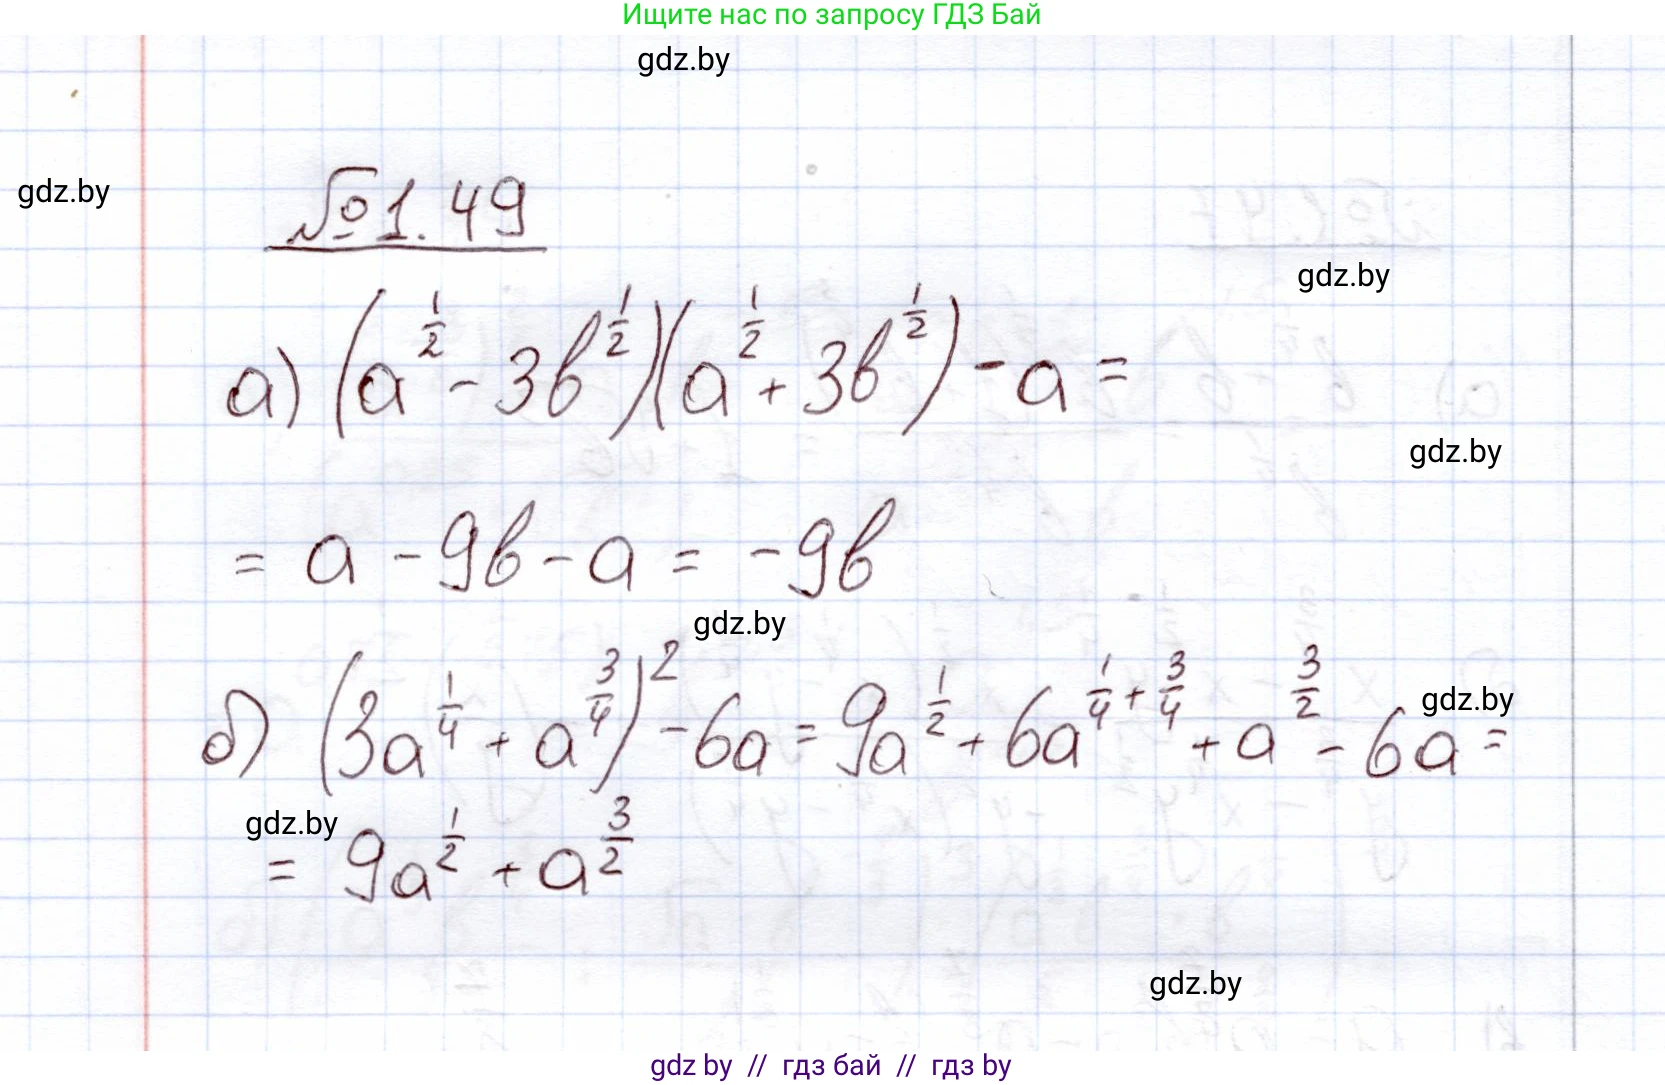 Ищите нас по запросу ГДЗ Бай
gdz.by
gdz.by
№1.49
gdz.by
а) (a^{1/2} - 3b^{1/2})(a^{1/2} + 3b^{1/2}) - a =
gdz.by
= a - 9b - a = -9b
gdz.by
б) (3a^{1/4} + a^{3/4})^2 - 6a = 9a^{1/2} + 6a^{1/4 + 3/4} + a^{3/2} - 6a =
gdz.by
gdz.by
= 9a^{1/2} + a^{3/2}
gdz.by
gdz by // гдз бай // гдз by